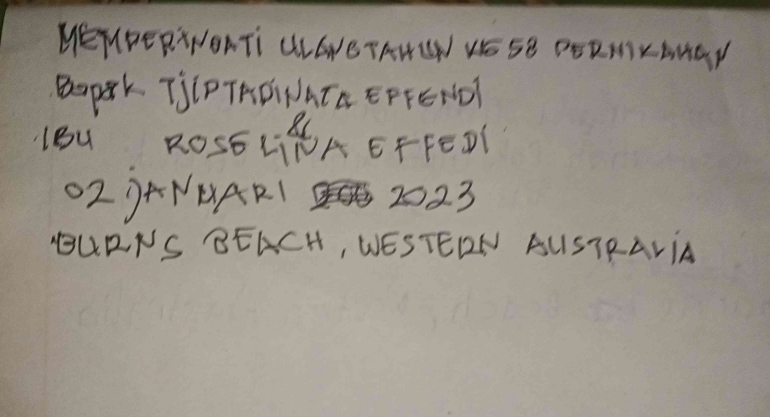 MEMPERINGATI ULANGTAHUN KE 58 PERNIKAHAN
Bapak TJIPTADINATA EFFENDI
&
IBU ROSELINA EFFEDI
02 JANUARI 2023
BURNS BEACH, WESTERN AUSTRALIA